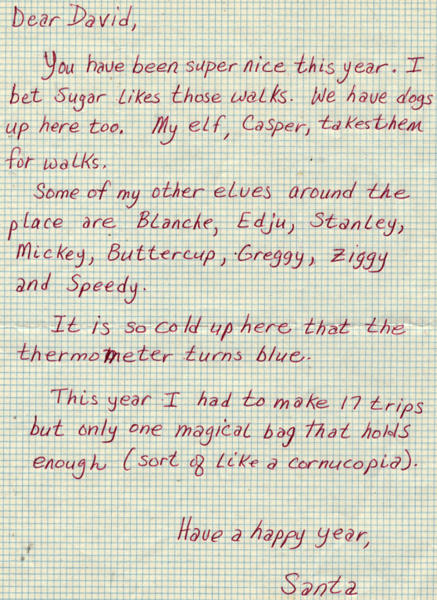 Dear David,
You have been super nice this year. I
bet Sugar likes those walks. We have dogs
up here too. My elf, Casper, takes them
for walks.
Some of my other elves around the
place are Blanche, Edju, Stanley,
Mickey, Buttercup, Greggy, Ziggy
and Speedy.
It is so cold up here that the
thermometer turns blue.
This year I had to make 17 trips
but only one magical bag that holds
enough (sort of like a cornucopia).
Have a happy year,
Santa